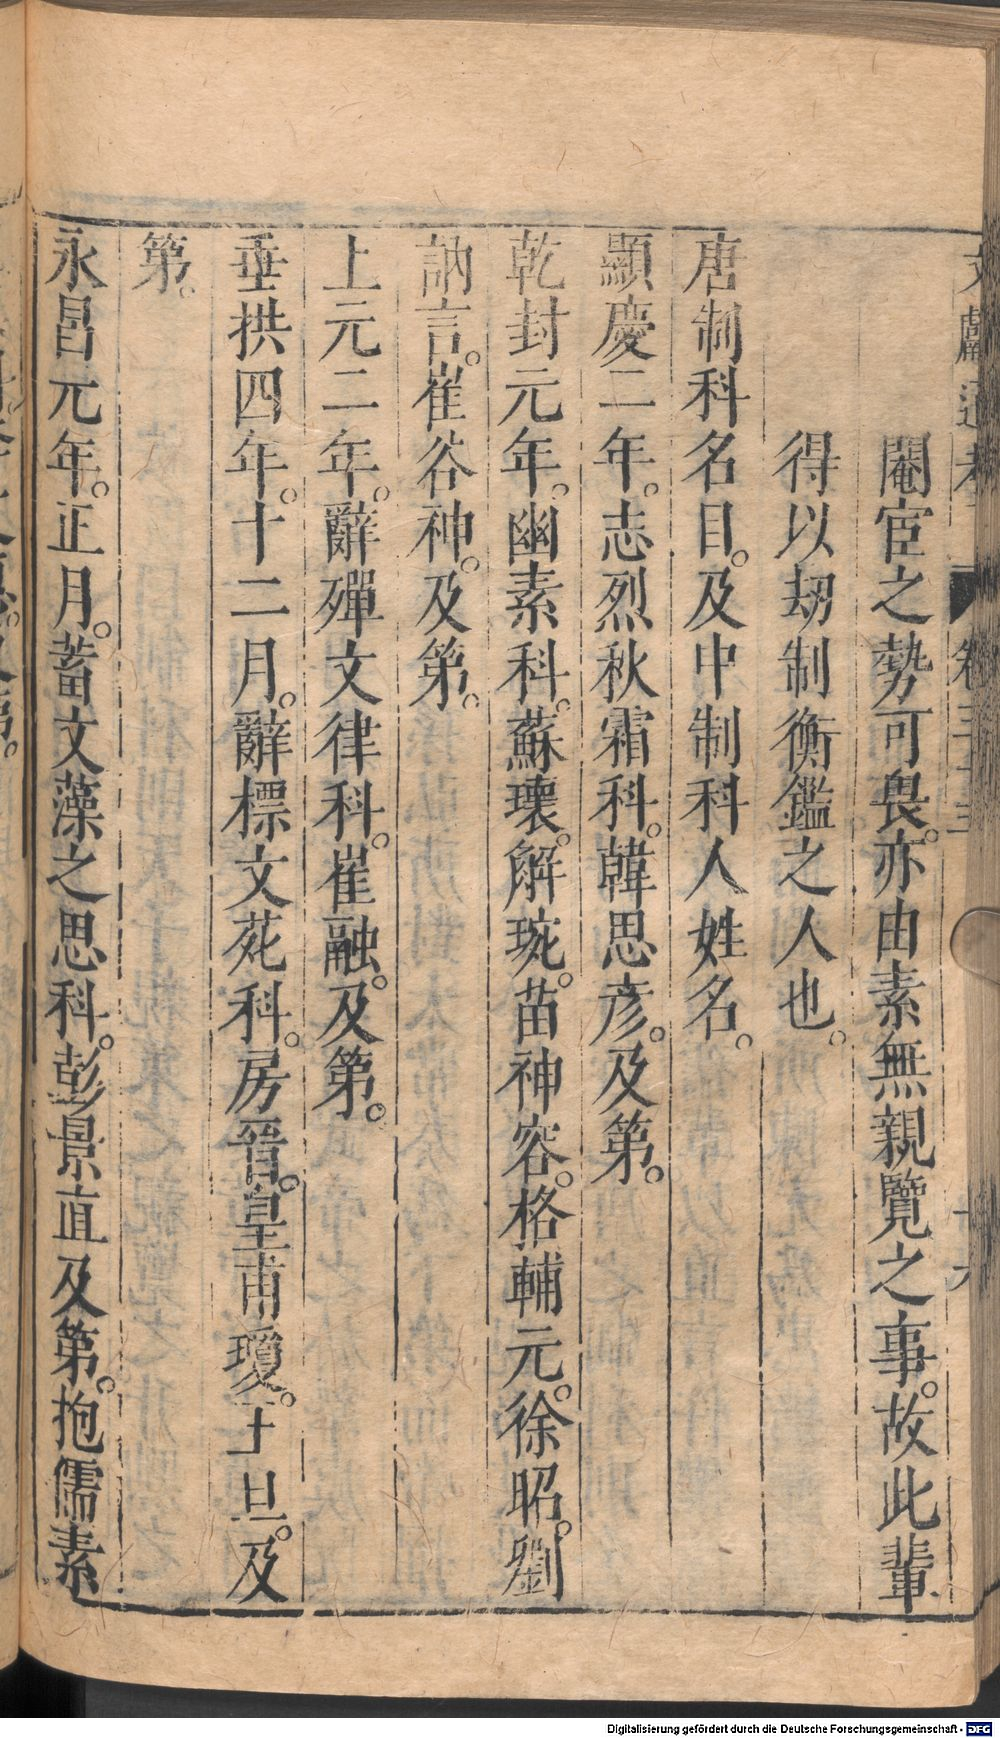 閹宦之勢可畏。亦由素無親覽之事。故此輩
得以刼制衡鑑之人也。
唐制科名目。及中制科人姓名。
顯慶二年。志烈秋霜科。韓思彦。及第。
乾封元年。幽素科。蘇瓌。解琬。苗神容。格輔元。徐昭。劉
訥言。崔谷神。及第。
上元二年。辭殫文律科。崔融。及第。
垂拱四年。十二月。辭標文苑科。房晉。皇甫瓊。王旦。及
第。
永昌元年。正月。蓄文藻之思科。彭景直及第。抱儒素
Digitalisierung gefördert durch die Deutsche Forschungsgemeinschaft - DFG